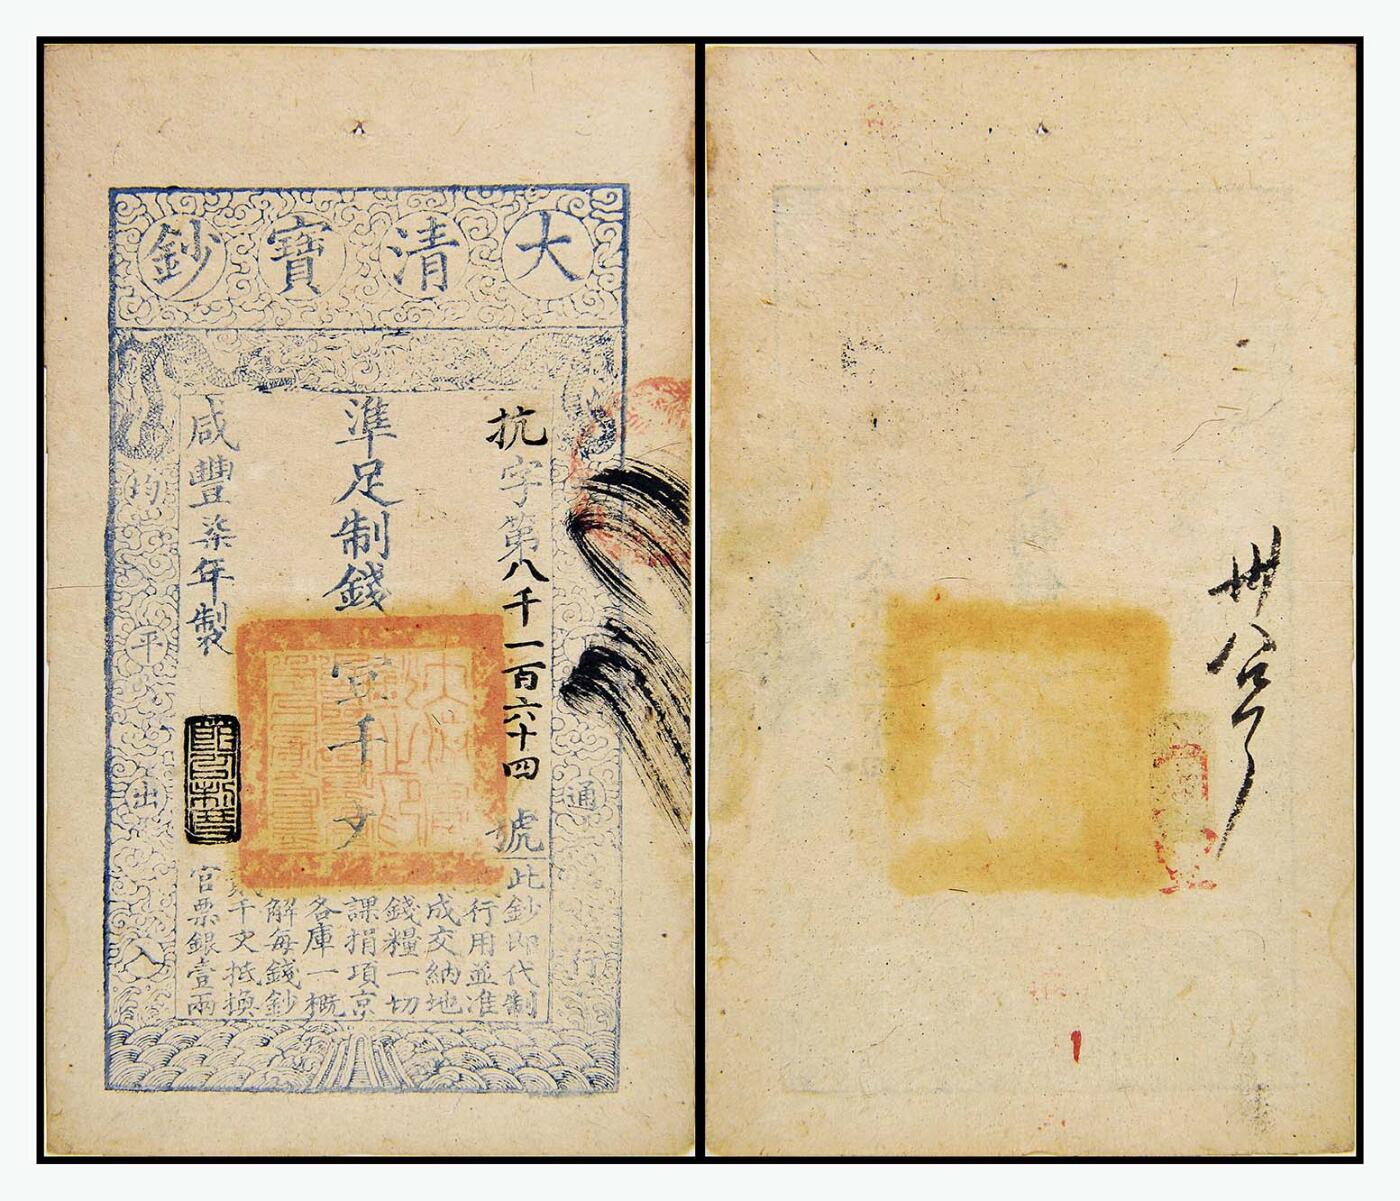 大清寶鈔
抗字第八千一百六十四號
準足制錢壹千文
咸豐柒年製
均平出入
通行
此鈔即代制
行用並准
成交納地
錢糧一切
課捐項京
各庫一概
解每錢鈔
貳千文抵換
官票銀壹兩